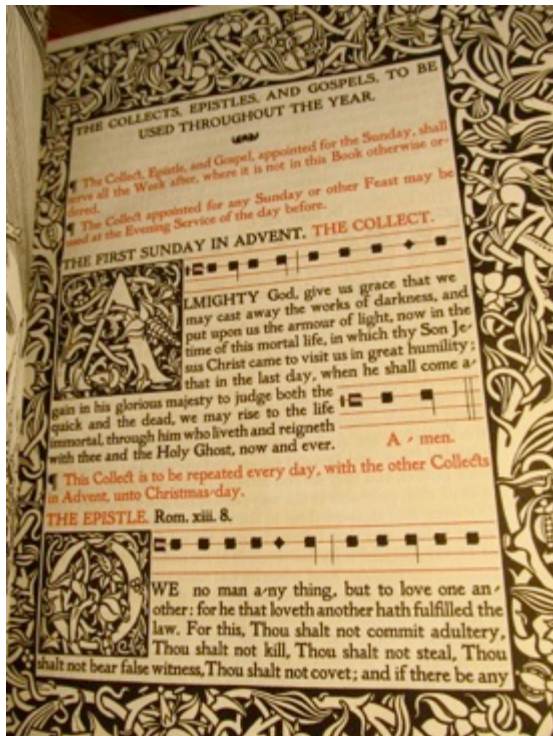 THE COLLECTS, EPISTLES, AND GOSPELS, TO BE
USED THROUGHOUT THE YEAR.
¶ The Collect, Epistle, and Gospel, appointed for the Sunday, shall
serve all the Week after, where it is not in this Book otherwise or-
dered.
¶ The Collect appointed for any Sunday or other Feast may be
used at the Evening Service of the day before.
THE FIRST SUNDAY IN ADVENT. THE COLLECT.
ALMIGHTY God, give us grace that we
may cast away the works of darkness, and
put upon us the armour of light, now in the
time of this mortal life, in which thy Son Je-
sus Christ came to visit us in great humility;
that in the last day, when he shall come a-
gain in his glorious majesty to judge both the
quick and the dead, we may rise to the life
immortal, through him who liveth and reigneth
with thee and the Holy Ghost, now and ever.
A - men.
¶ This Collect is to be repeated every day, with the other Collects
in Advent, unto Christmas-day.
THE EPISTLE. Rom. xiii. 8.
OWE no man a-ny thing, but to love one an-
other: for he that loveth another hath fulfilled the
law. For this, Thou shalt not commit adultery,
Thou shalt not kill, Thou shalt not steal, Thou
shalt not bear false witness, Thou shalt not covet; and if there be any